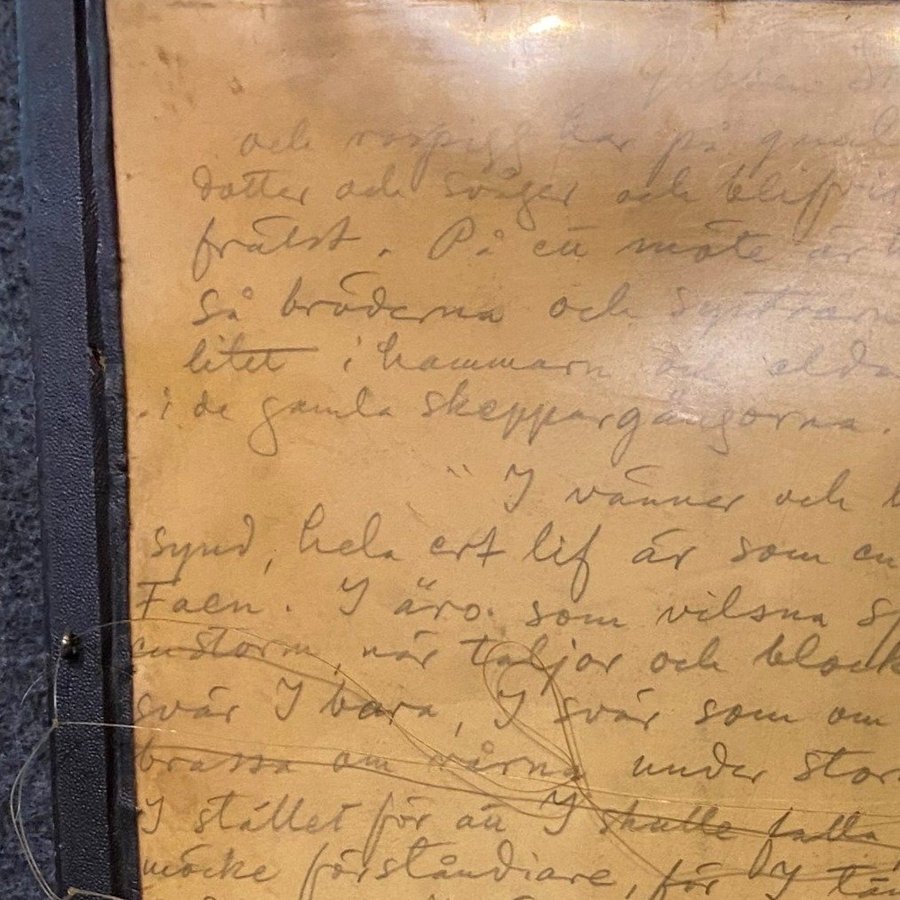 och har på
dotter och svåger och blifvit
frälst. På ett möte är
så bröderna och systrarn
litet i hammarn och elda
i de gamla skeppargångorna.
" I vänner och
synd, hela ert lif är som en
Faen. I äro som vilsna
när taljor och block
svär I bara, I svär som om
brassa om rårna under stor
I stället för att I skulle falla
möcke förståndiare, för I tän